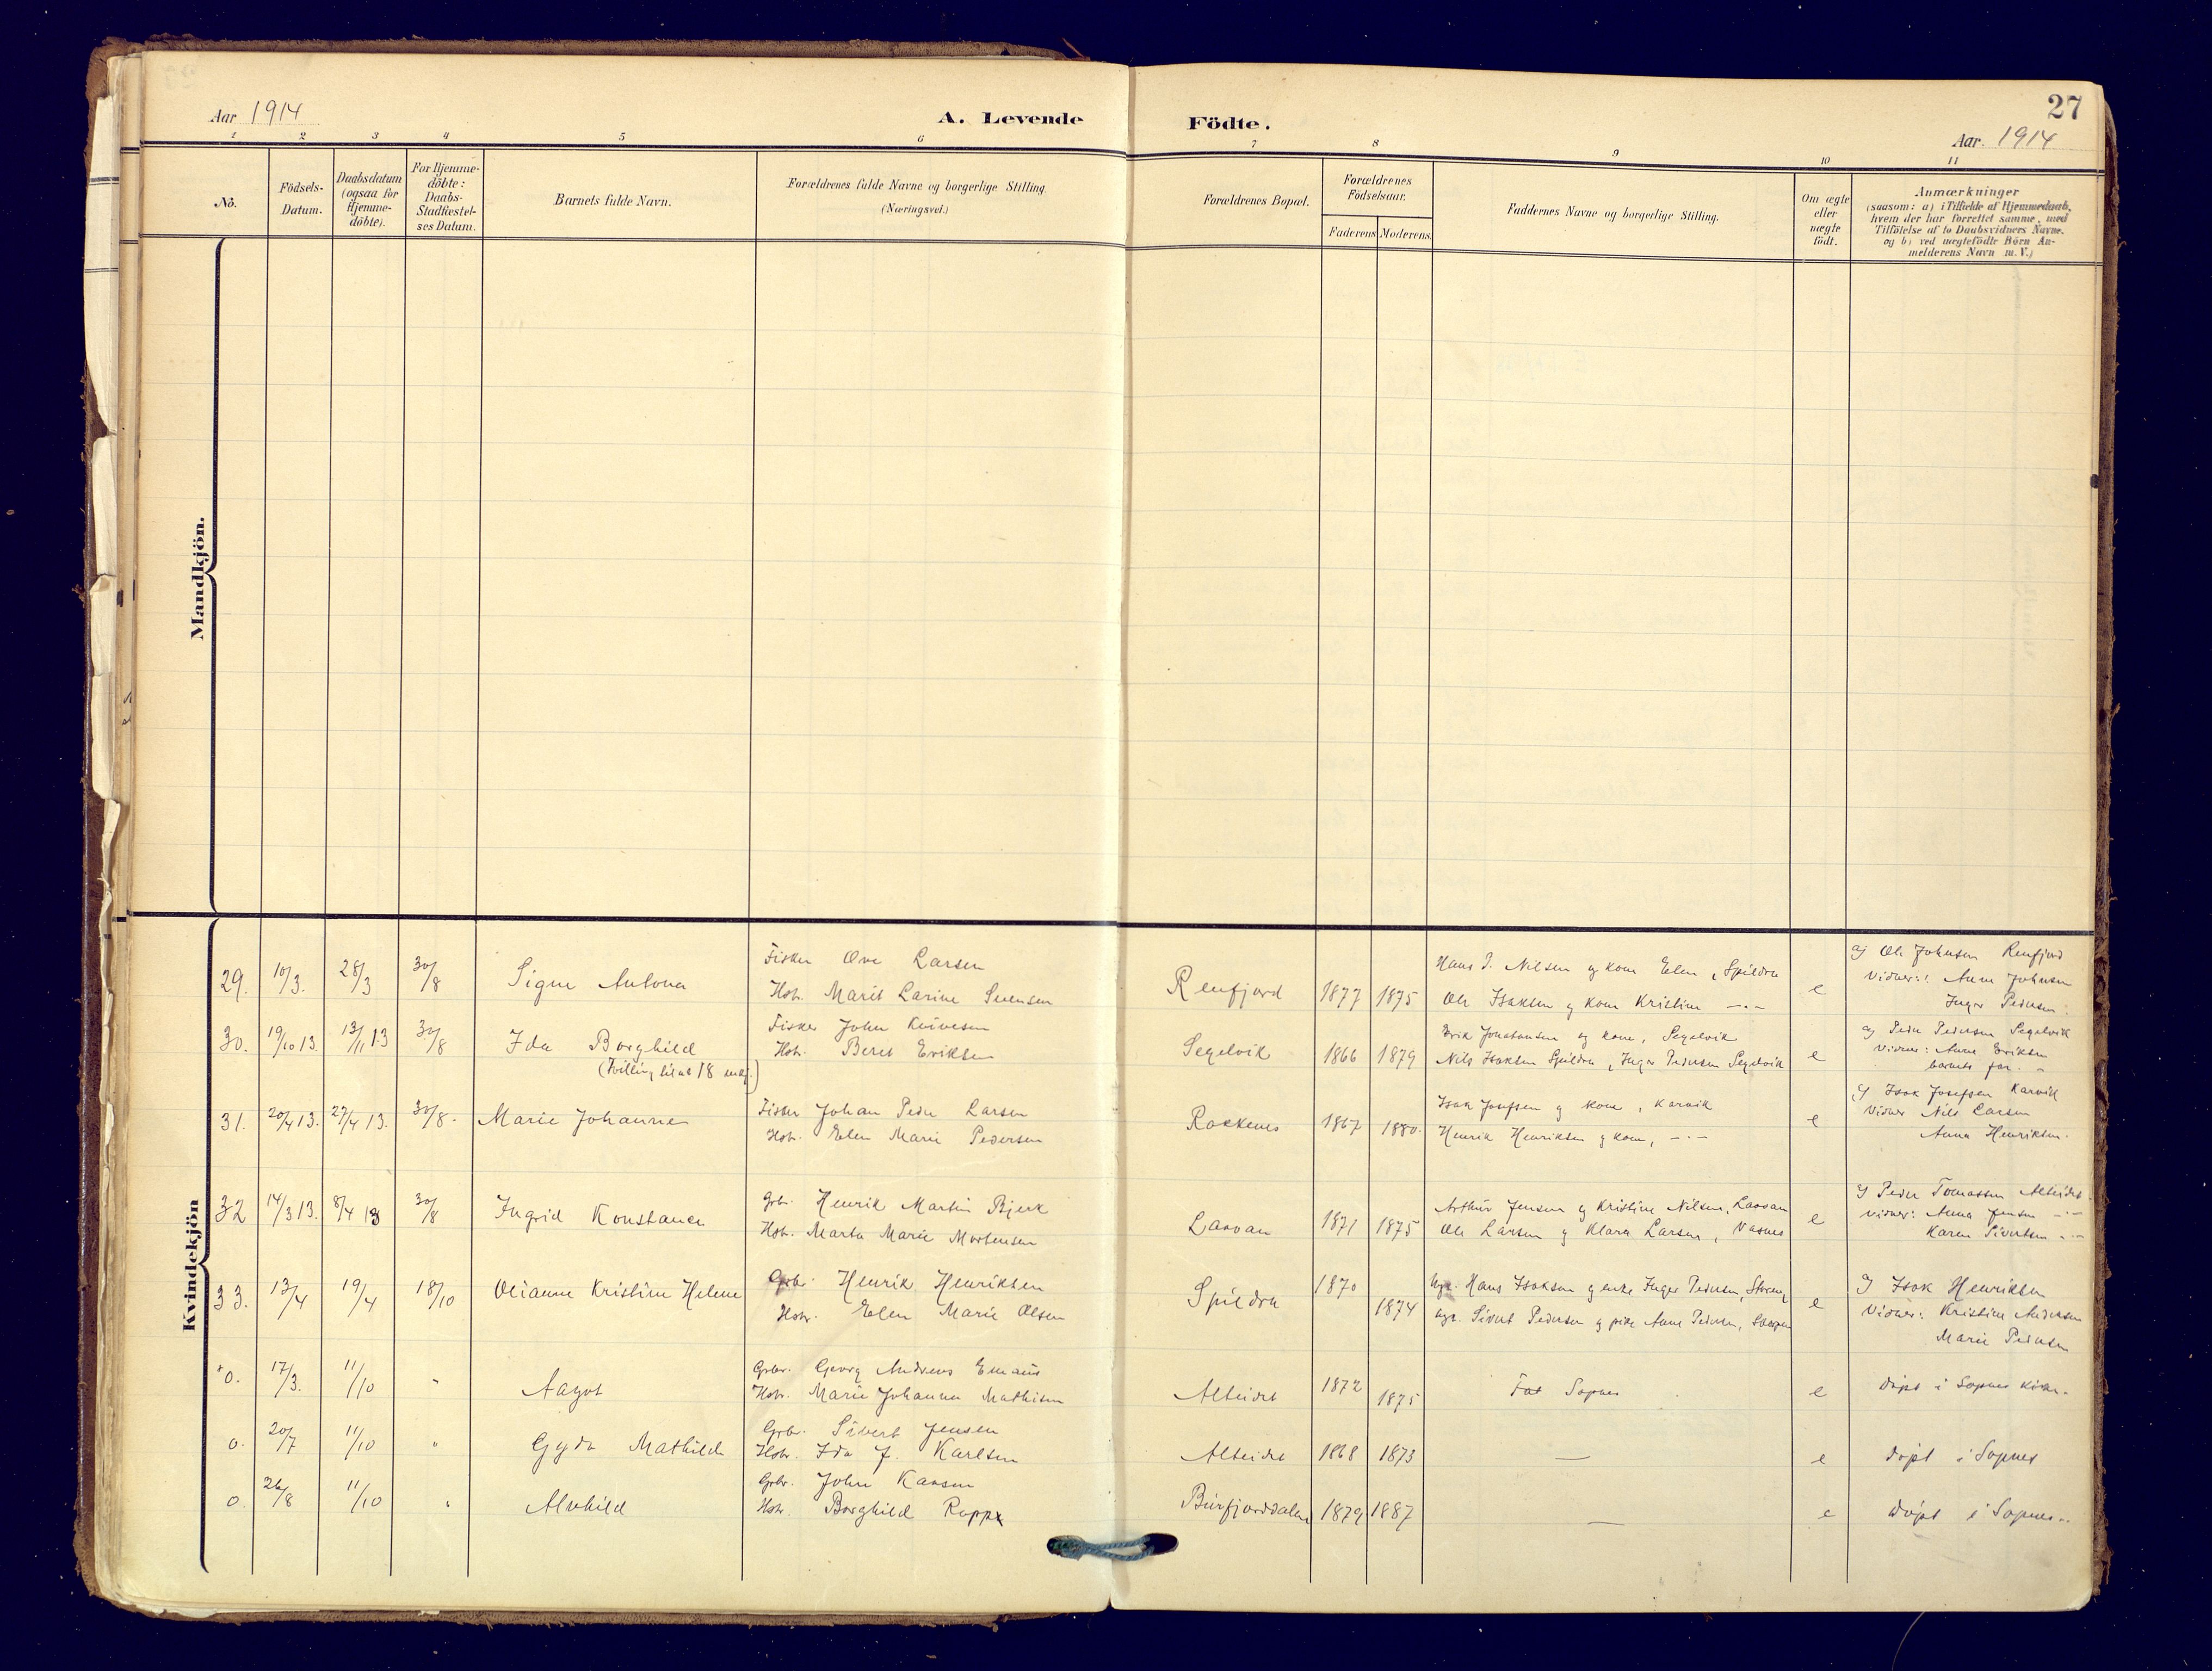 Aar 1914
A. Levende Födte.
27
Aar. 1914
1 2 3 4 5 6 7 8 9 10 11
No.
Födsels-Datum.
Daabsdatum (ogsaa for Hjemme-döbte).
For Hjemme-döbte: Daabs-Stadfæstel-ses Datum.
Barnets fulde Navn.
Forældrenes fulde Navne og borgerlige Stilling.
(Næringsvei.)
Forældrenes Bopæl.
Forældrenes Födselsaar.
Faderens Moderens.
Faddernes Navne og borgerlige Stilling.
Om ægte eller uægte födt.
Anmærkninger
(saasom: a) i Tilfælde af Hjemmedaab,
hvem der har forrettet samme, med
Tilföielse af to Daabsvidners Navne.
og b) ved uægtefödte Börn An-
melderens Navn m. V.)
Mandkjön.
Kvindekjön
29. 10/3. 28/3 30/8 Signe Antona
Fisker Ove Larsen
Hstr. Marit Larine Svensen
Renfjord 1877 1875
Hans P. Nilsen og kone Elen, Spildra
Ole Isaksen og kone Kristine —"—
e
Ole Johnsen Renfjord
Vidner: Anne Johnsen
Inger Pedersen
30. 19/10 13. 13/11 13 30/8 Ida Borghild
(Tvilling til nr 18 )
Fisker John
Hstr. Beret Eriksen
Segelvik 1866 1879
Erik Jonatansen og kone, Segelvik
Nils Isaksen Spildra, Inger Pedersen Segelvik
e
Peder Pedersen Segelvik
Vidner: Anne Eriksen
barnets far. —"—
31. 20/4 13. 27/4 13. 30/8. Marie Johanne
Fisker Johan Peder Larsen
Hstr. Elen Marie Pedersen
Rakkenes 1867 1880.
Isak Josefsen og kone, Karvik
Henrik Henriksen og kone, —"—
e
Isak Josefsen Karvik
Vidner Nils Larsen
Anna Henriksen.
32 14/3 13. 8/4 13 30/8 Ingrid Konstance
Gbr. Henrik Martin Bjerk
Hstr. Marta Marie Mortensen
Laavan 1871 1875
Arthur Jensen og Kristine Nilsen, Laavan
Ole Larsen og Klara Larsen, Vasnes
e
Peder Tomassen Alteidet.
Vidner: Anna Jensen —"—
Karen Sivertsen —"—
33. 13/4 19/4 18/10 Olianne Kristine Helene
Gbr. Henrik Henriksen
Hstr. Elen Marie Olsen
Spildra 1870 1874
Ugk. Hans Isaksen og enke Inger Pedersen,
ugk. Sivert Pedersen og pike Anne Pedersen,
e
Isak Henriksen
Vidner: Kristine Andersen
Marie Pedersen
0. 17/3. 11/10 " Aagot
Gbr. Georg Andreas Emaus
Hstr. Marie Johanna Mathisen
Alteidet 1872 1875
Sopnes
e
döpt i Sopnes
0. 20/7 11/10 " Gyda Mathilde
Gbr. Sivert Jensen
Hstr. Ida J. Karlsen
Alteidet 1868 1873
—
e
döpt i Sopnes
0. 26/8 11/10 " Alvhild
Gbr. John Kaasen
Hstr. Borghild Rapp
Burfjorddalen 1879 1887
—
e
döpt i Sopnes.